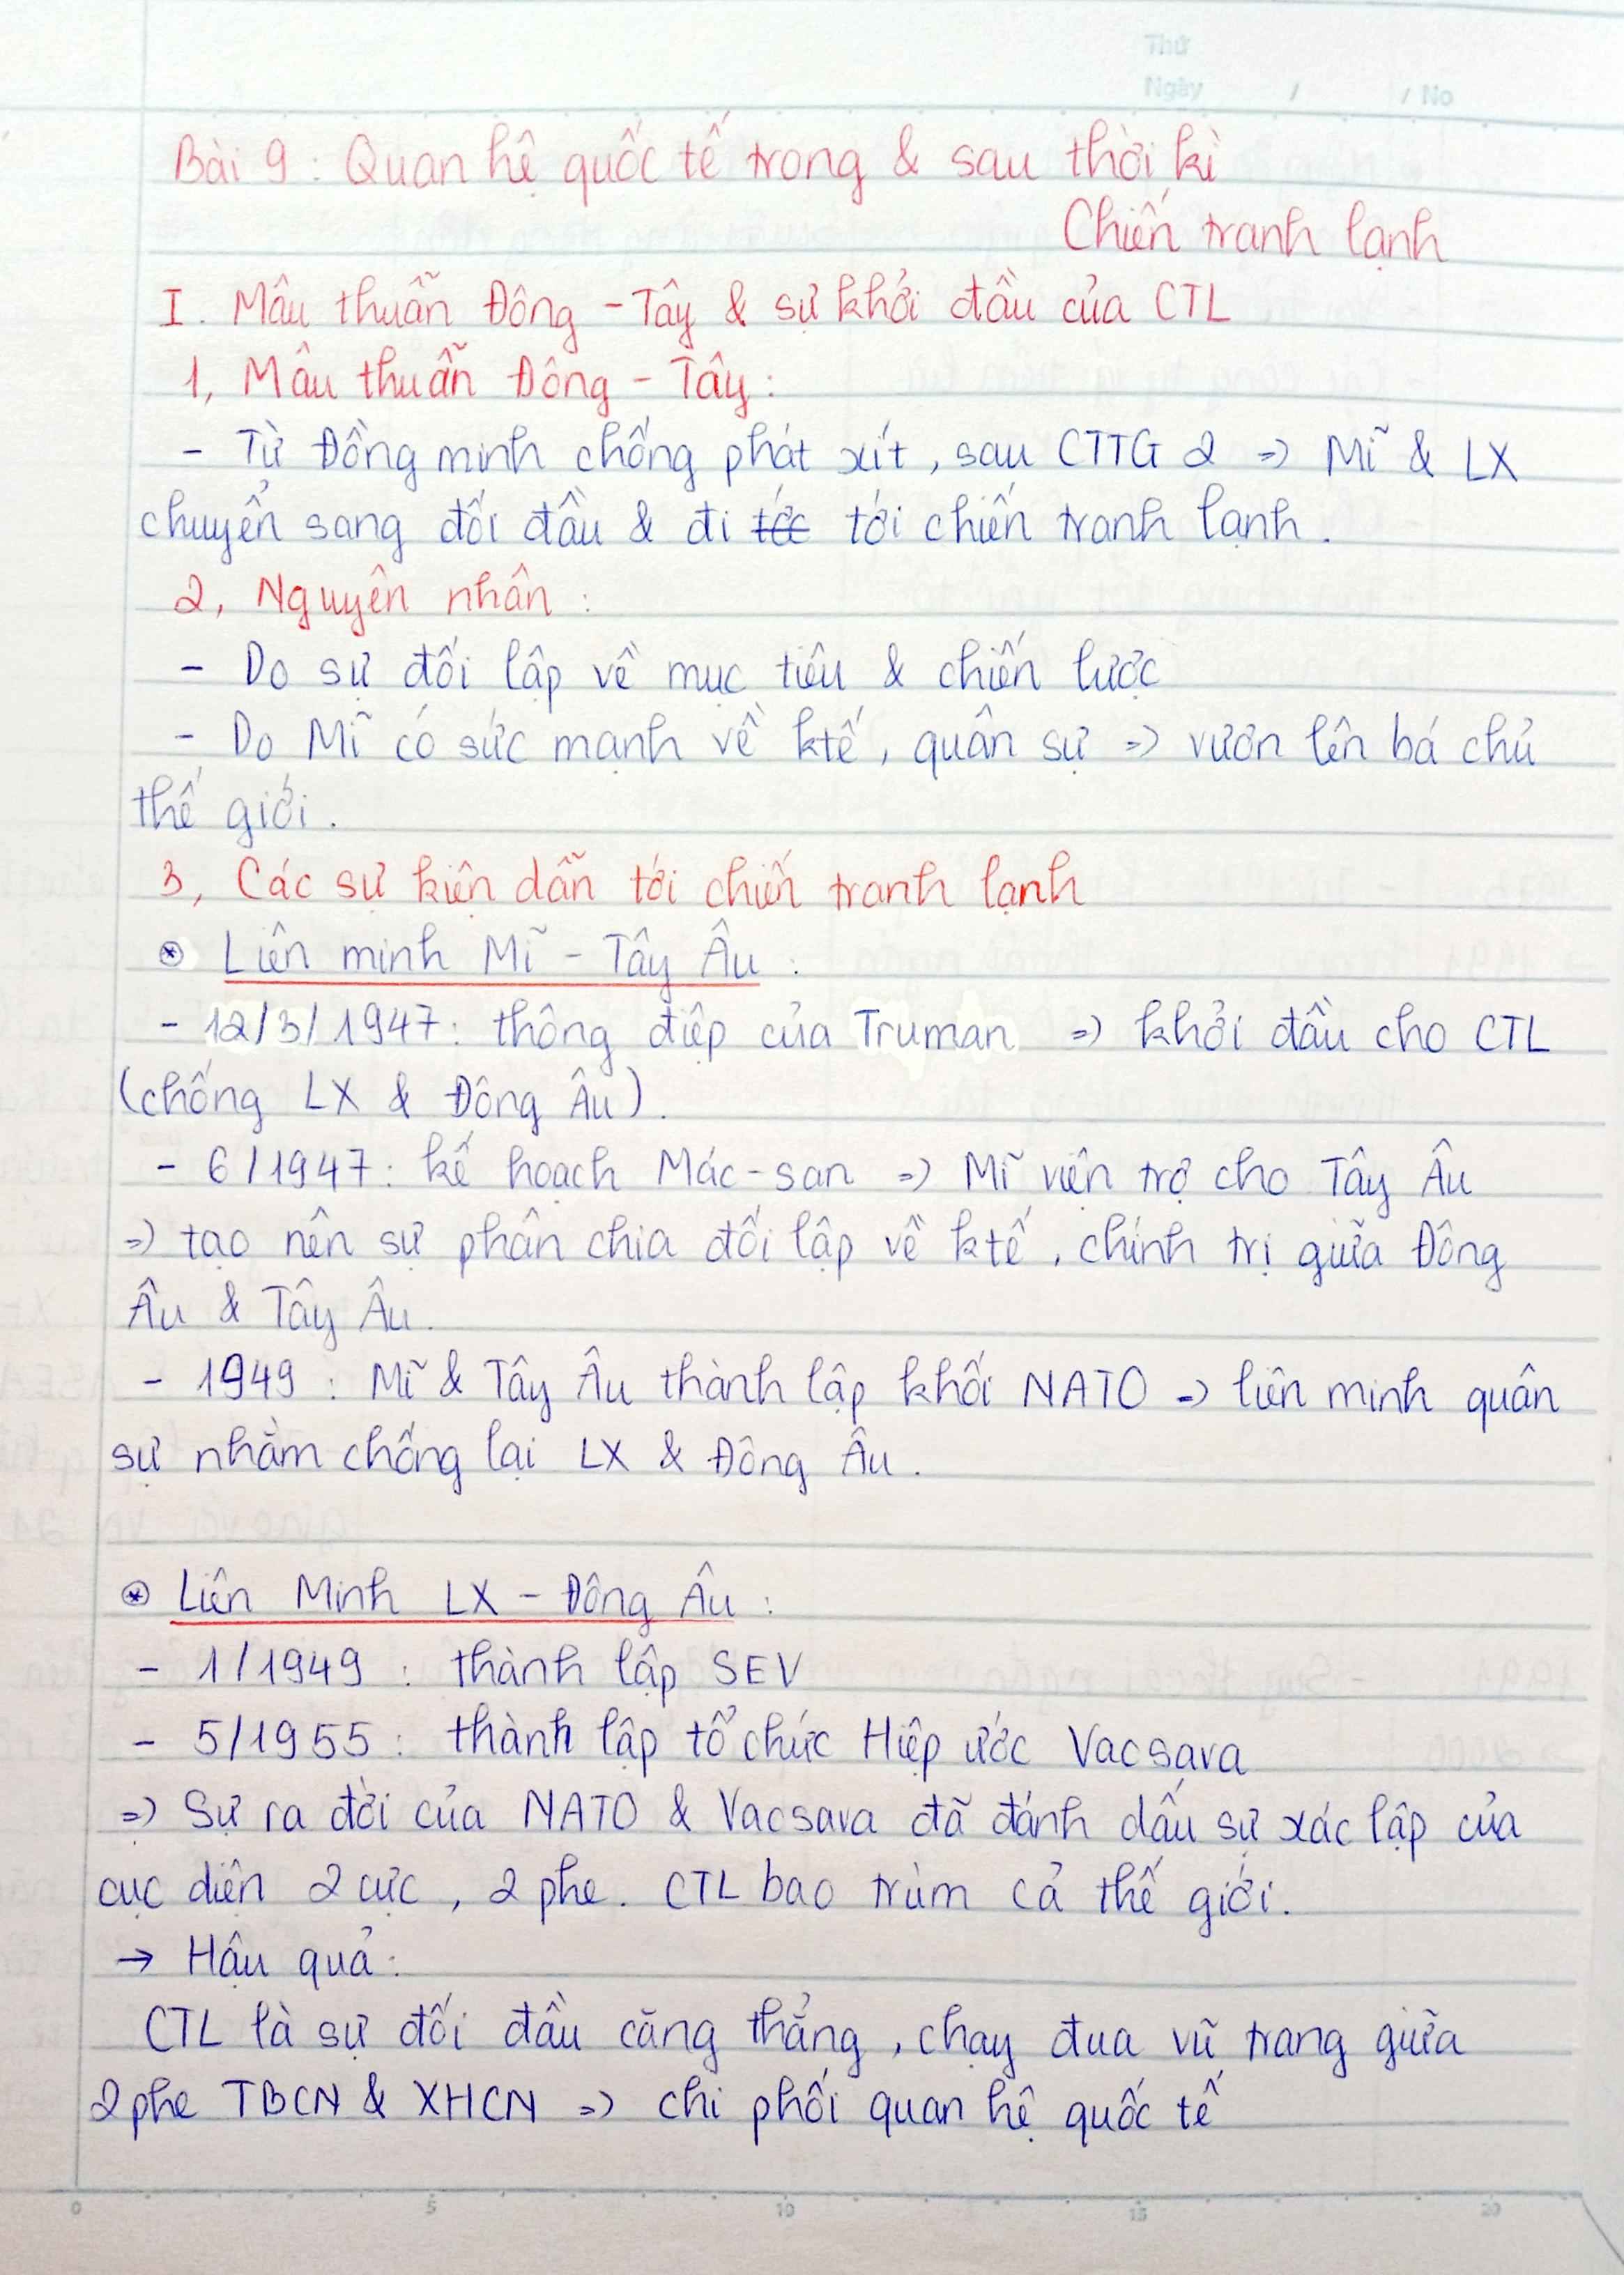 Thứ
Ngày / / No
Bài 9 : Quan hệ quốc tế trong & sau thời kì
Chiến tranh lạnh
I. Mâu thuẫn Đông - Tây & sự khởi đầu của CTL
1, Mâu thuẫn Đông - Tây :
- Từ Đồng minh chống phát xít, sau CTTG 2 => Mĩ & LX
chuyển sang đối đầu & đi tới chiến tranh lạnh.
2, Nguyên nhân :
- Do sự đối lập về mục tiêu & chiến lược
- Do Mĩ có sức mạnh về ktế, quân sự => vươn lên bá chủ
thế giới.
3, Các sự kiện dẫn tới chiến tranh lạnh
* Liên minh Mĩ - Tây Âu :
- 12/3/1947 : thông điệp của Truman => khởi đầu cho CTL
(chống LX & Đông Âu).
- 6/1947 : kế hoạch Mác-san => Mĩ viện trợ cho Tây Âu
=> tạo nên sự phân chia đối lập về ktế, chính trị giữa Đông
Âu & Tây Âu.
- 1949 : Mĩ & Tây Âu thành lập khối NATO => liên minh quân
sự nhằm chống lại LX & Đông Âu.
* Liên Minh LX - Đông Âu :
- 1/1949 : thành lập SEV
- 5/1955 : thành lập tổ chức Hiệp ước Vacsava
=> Sự ra đời của NATO & Vacsava đã đánh dấu sự xác lập của
cục diện 2 cực, 2 phe. CTL bao trùm cả thế giới.
→ Hậu quả :
CTL là sự đối đầu căng thẳng, chạy đua vũ trang giữa
2 phe TBCN & XHCN => chi phối quan hệ quốc tế
0 5 10 15 20